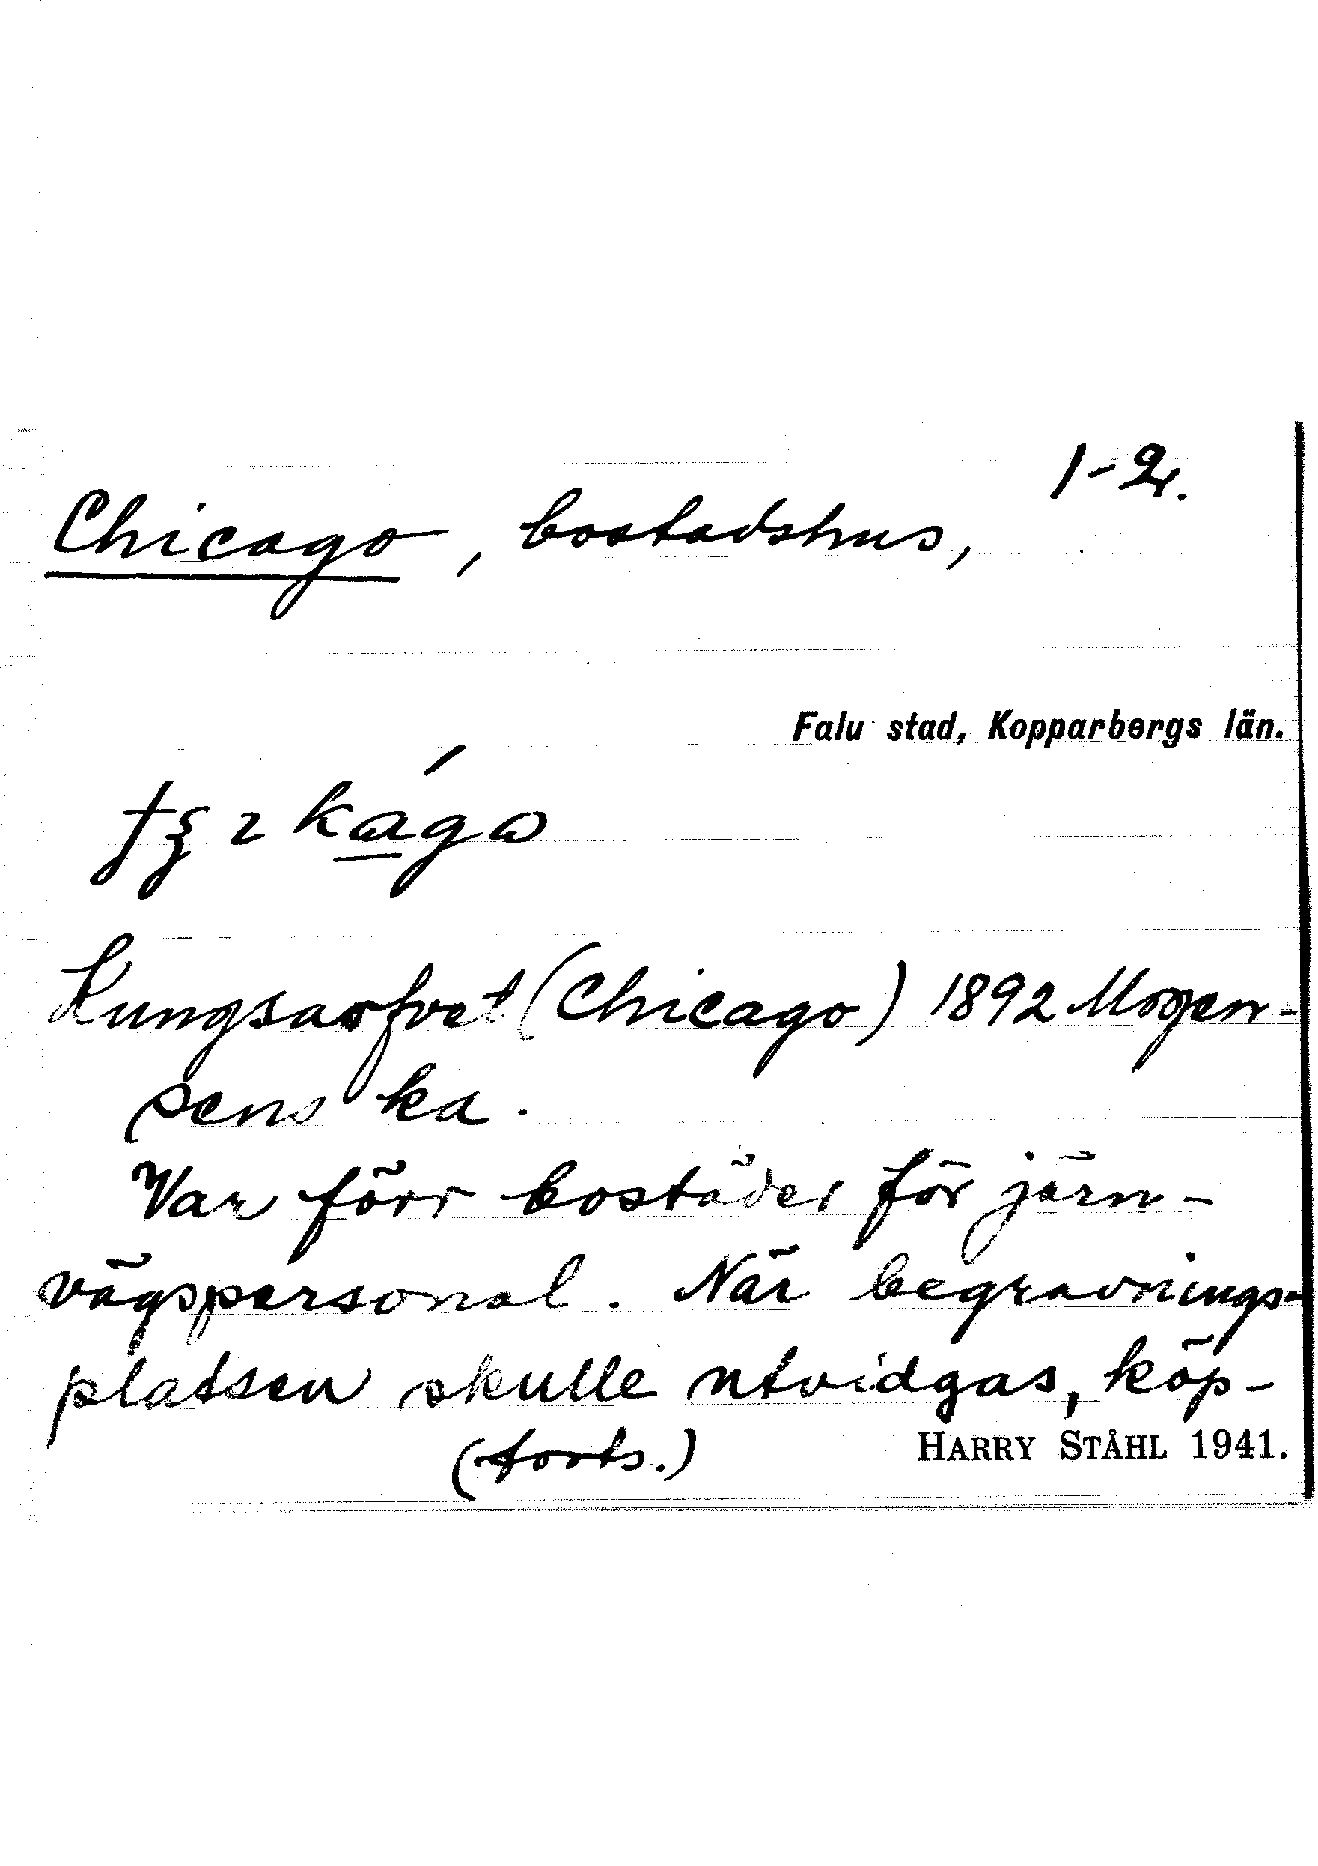 1-2.
Chicago, bostadshus,
Falu stad, Kopparbergs län.
Kungsarfvet (Chicago) 1892 Mogen-
sens ka.
Var förr bostäder för järn-
vägspersonal. När begravnings-
platsen skulle utvidgas, köp-
(forts.)
HARRY STÅHL 1941.